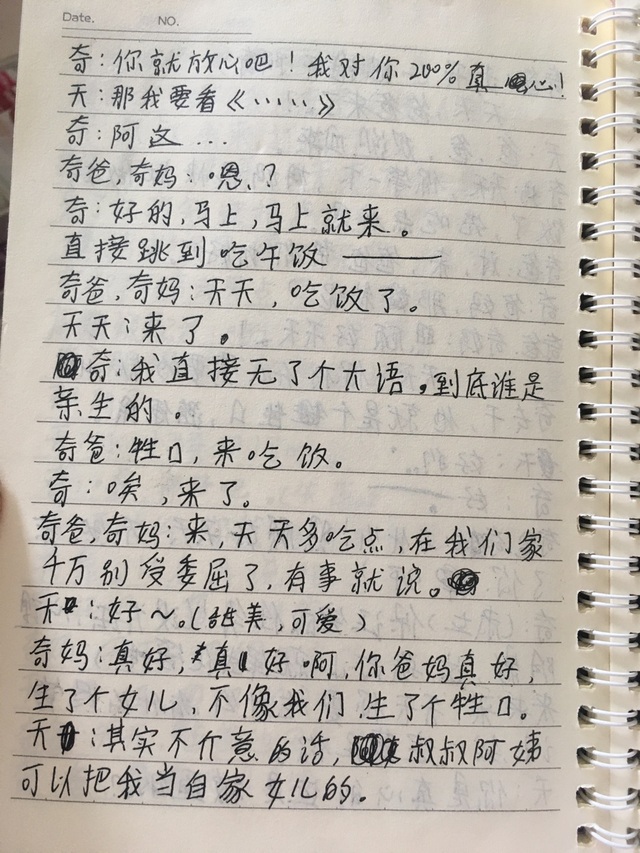 Date.
NO.
奇:你就放心吧!我对你200%真心!
天:那我要看《……》
奇:阿这...
奇爸,奇妈:嗯?
奇:好的,马上,马上就来。
直接跳到吃午饭——
奇爸,奇妈:天天,吃饭了。
天天:来了。
奇:我直接无了个大语。到底谁是
亲生的。
奇爸:牲口,来吃饭。
奇:唉,来了。
奇爸,奇妈:来,天天多吃点,在我们家
千万别受委屈了,有事就说。
天:好~。(甜美,可爱)
奇妈:真好,真好啊,你爸妈真好,
生了个女儿,不像我们,生了个牲口。
天:其实不介意的话,叔叔阿姨
可以把我当自家女儿的。